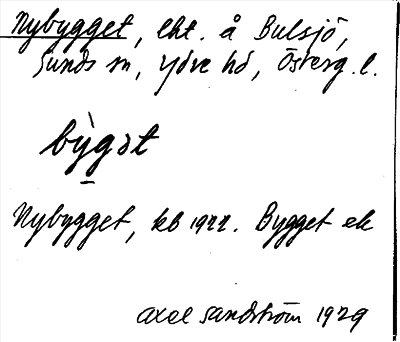 Nybygget, lht. å Bulsjö,
Sunds sn, Ydre hd, Österg. l.
bỳgət
Nybygget, kb 1922. Bygget ek
Axel Sandström 1929